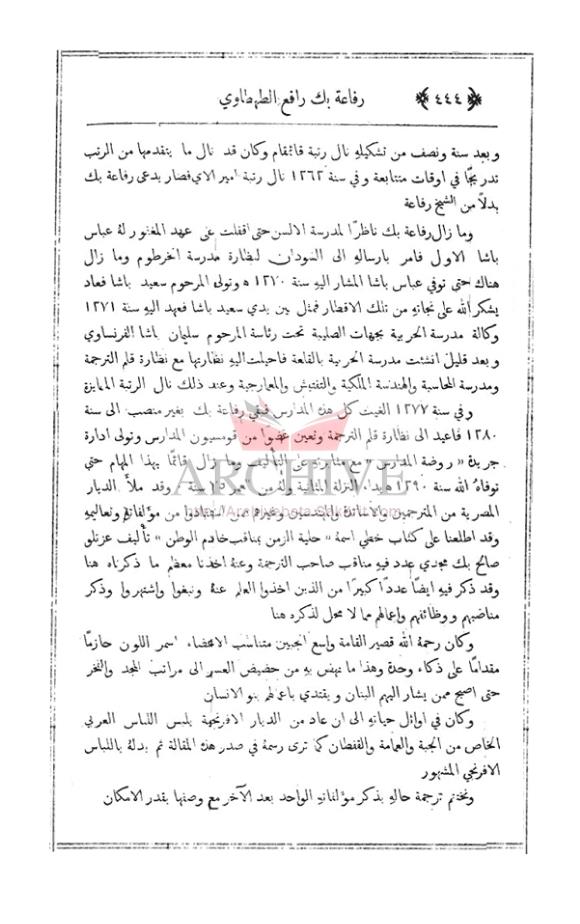 ﴿ ٤٤٤ ﴾ رفاعة بك رافع الطهطاوي
وبعد سنة ونصف من تشكيلهِ نال رتبة قائمقام وكان قد نال ما يتقدمها من الرتب
تدريجًا في اوقات متتابعة وفي سنة ١٢٦٢ نال رتبة امير الاي فصار يدعى رفاعة بك
بدلاً من الشيخ رفاعة
وما زال رفاعة بك ناظرًا لمدرسة الالسن حتى اقفلت على عهد المغفور لهُ عباس
باشا الاول فامر بارسالهِ الى السودان لنظارة مدرسة الخرطوم وما زال
هناك حتى توفي عباس باشا المشار اليهِ سنة ١٢٧٠ ه وتولى المرحوم سعيد باشا فعاد
يشكر الله على نجاتهِ من تلك الاقطار فمثل بين يدي سعيد باشا فعهد اليهِ سنة ١٢٧١
وكالة مدرسة الحربية بجهات الصليبة تحت رئاسة المرحوم سليمان باشا الفرنساوي
وبعد قليل انشئت مدرسة الحربية بالقلعة فاحيلت اليهِ نظارتها مع نظارة قلم الترجمة
ومدرسة المحاسبة والهندسة الملكية والتفتيش والمعمارجية وعند ذلك نال الرتبة المتمايزة
وفي سنة ١٢٧٧ الغيت كل هذه المدارس فبقي رفاعة بك بغير منصب الى سنة
١٢٨٠ فاعيد الى نظارة قلم الترجمة وتعين عضوا من قومسيون المدارس وتولى ادارة
جريدة « روضة المدارس » مع مثابرته على التأليف وما زال قائمًا بهذا المهام حتى
توفاهُ الله سنة ١٢٩٠ ه بداء النزلة المثانية ولهُ من العمر سنة وقد ملأ الديار
المصرية من المترجمين والاساتذة والمهندسين وغيرهم من استفادوا من مؤلفاتهِ وتعاليمهِ
وقد اطلعنا على كتاب خطي اسمهُ « حلية الزمن بمناقب خادم الوطن » تأليف عزتلو
صالح بك مجدي عدد فيهِ مناقب صاحب الترجمة وعنهُ اخذنا معظم ما ذكرناه هنا
وقد ذكر فيهِ ايضًا عددًا كبيرًا من الذين اخذوا العلم عنهُ ونبغوا واشتهروا وذكر
مناصبهم ووظائفهم واعمالهم مما لا محل لذكره هنا
وكان رحمهُ الله قصير القامة واسع الجبين متناسب الاعضاء اسمر اللون حازمًا
مقدامًا على ذكاء وحدة وهذا ما نهض بهِ من حضيض العسر الى مراتب المجد والفخر
حتى اصبح ممن يشار اليهم البنان ويقتدي باعمالهم بنو الانسان
وكان في اوائل حياتهِ الى ان عاد من الديار الافرنجية يلبس اللباس العربي
الخاص من الجبة والعمامة والقفطان كما ترى رسمهُ في صدر هذه المقالة ثم بدلهُ باللباس
الافرنجي المشهور
ونختتم ترجمة حالهِ بذكر مؤلفاتهِ الواحد بعد الآخر مع وصفها بقدر الامكان
ARCHIVE